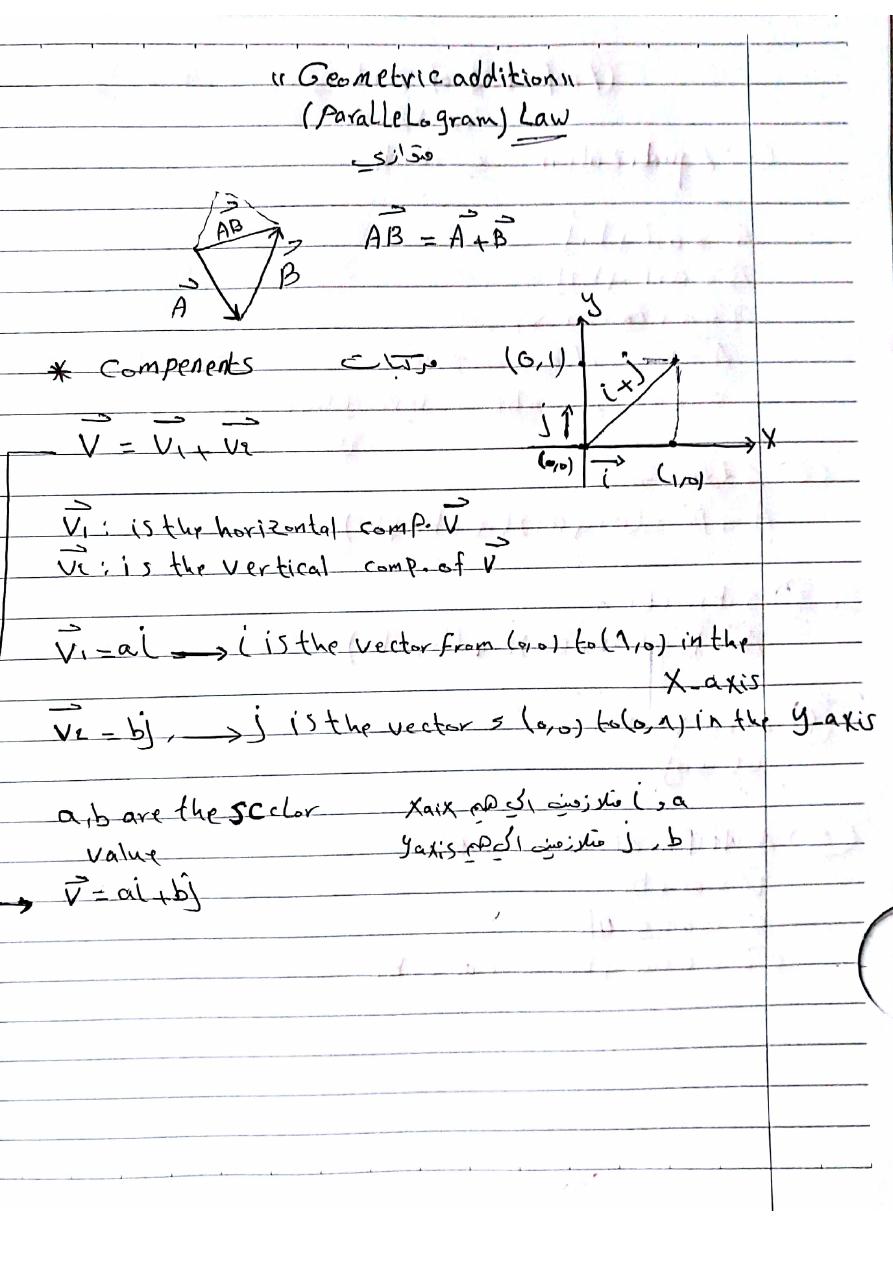 "Geometric addition"
(ParalleLogram) Law
متوازي
AB
AB = A + B
A
B
y
* Compenents مركبات (0,1)
i+j
j
V = V1 + V2
x
(0,0) i (1,0)
V1 : is the horizontal comp. V
V2 : is the vertical comp. of V
V1 = ai → i is the vector from (0,0) to (1,0) in the
X-axis
V2 = bj, → j is the vector s (0,0) to (0,1) in the y-axis
a,b are the scclor
value
a و i متلازمين الي هم xaix
b , j متلازمين الي هم yaxis
→ V = ai + bj